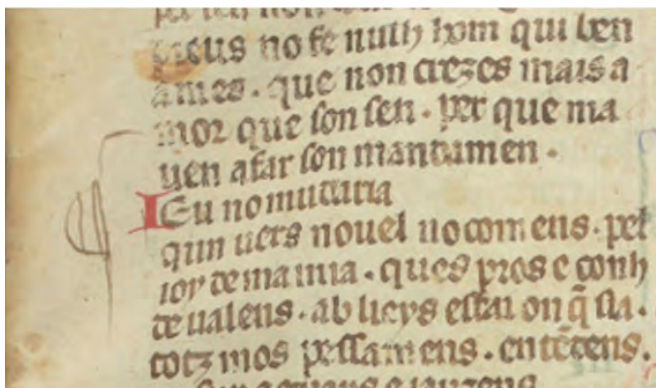 no fe nuth hom qui ben
ames. que non crezes mais a
mor que son sen. per que ma
uen afar son mandamen.
Ieu no mudaria
qun uers nouel no comens. pel
ioy de ma mia. ques pros e conh
de ualens. ab lieys estai on q̃ sia.
totz mos pessamens. entẽdens.